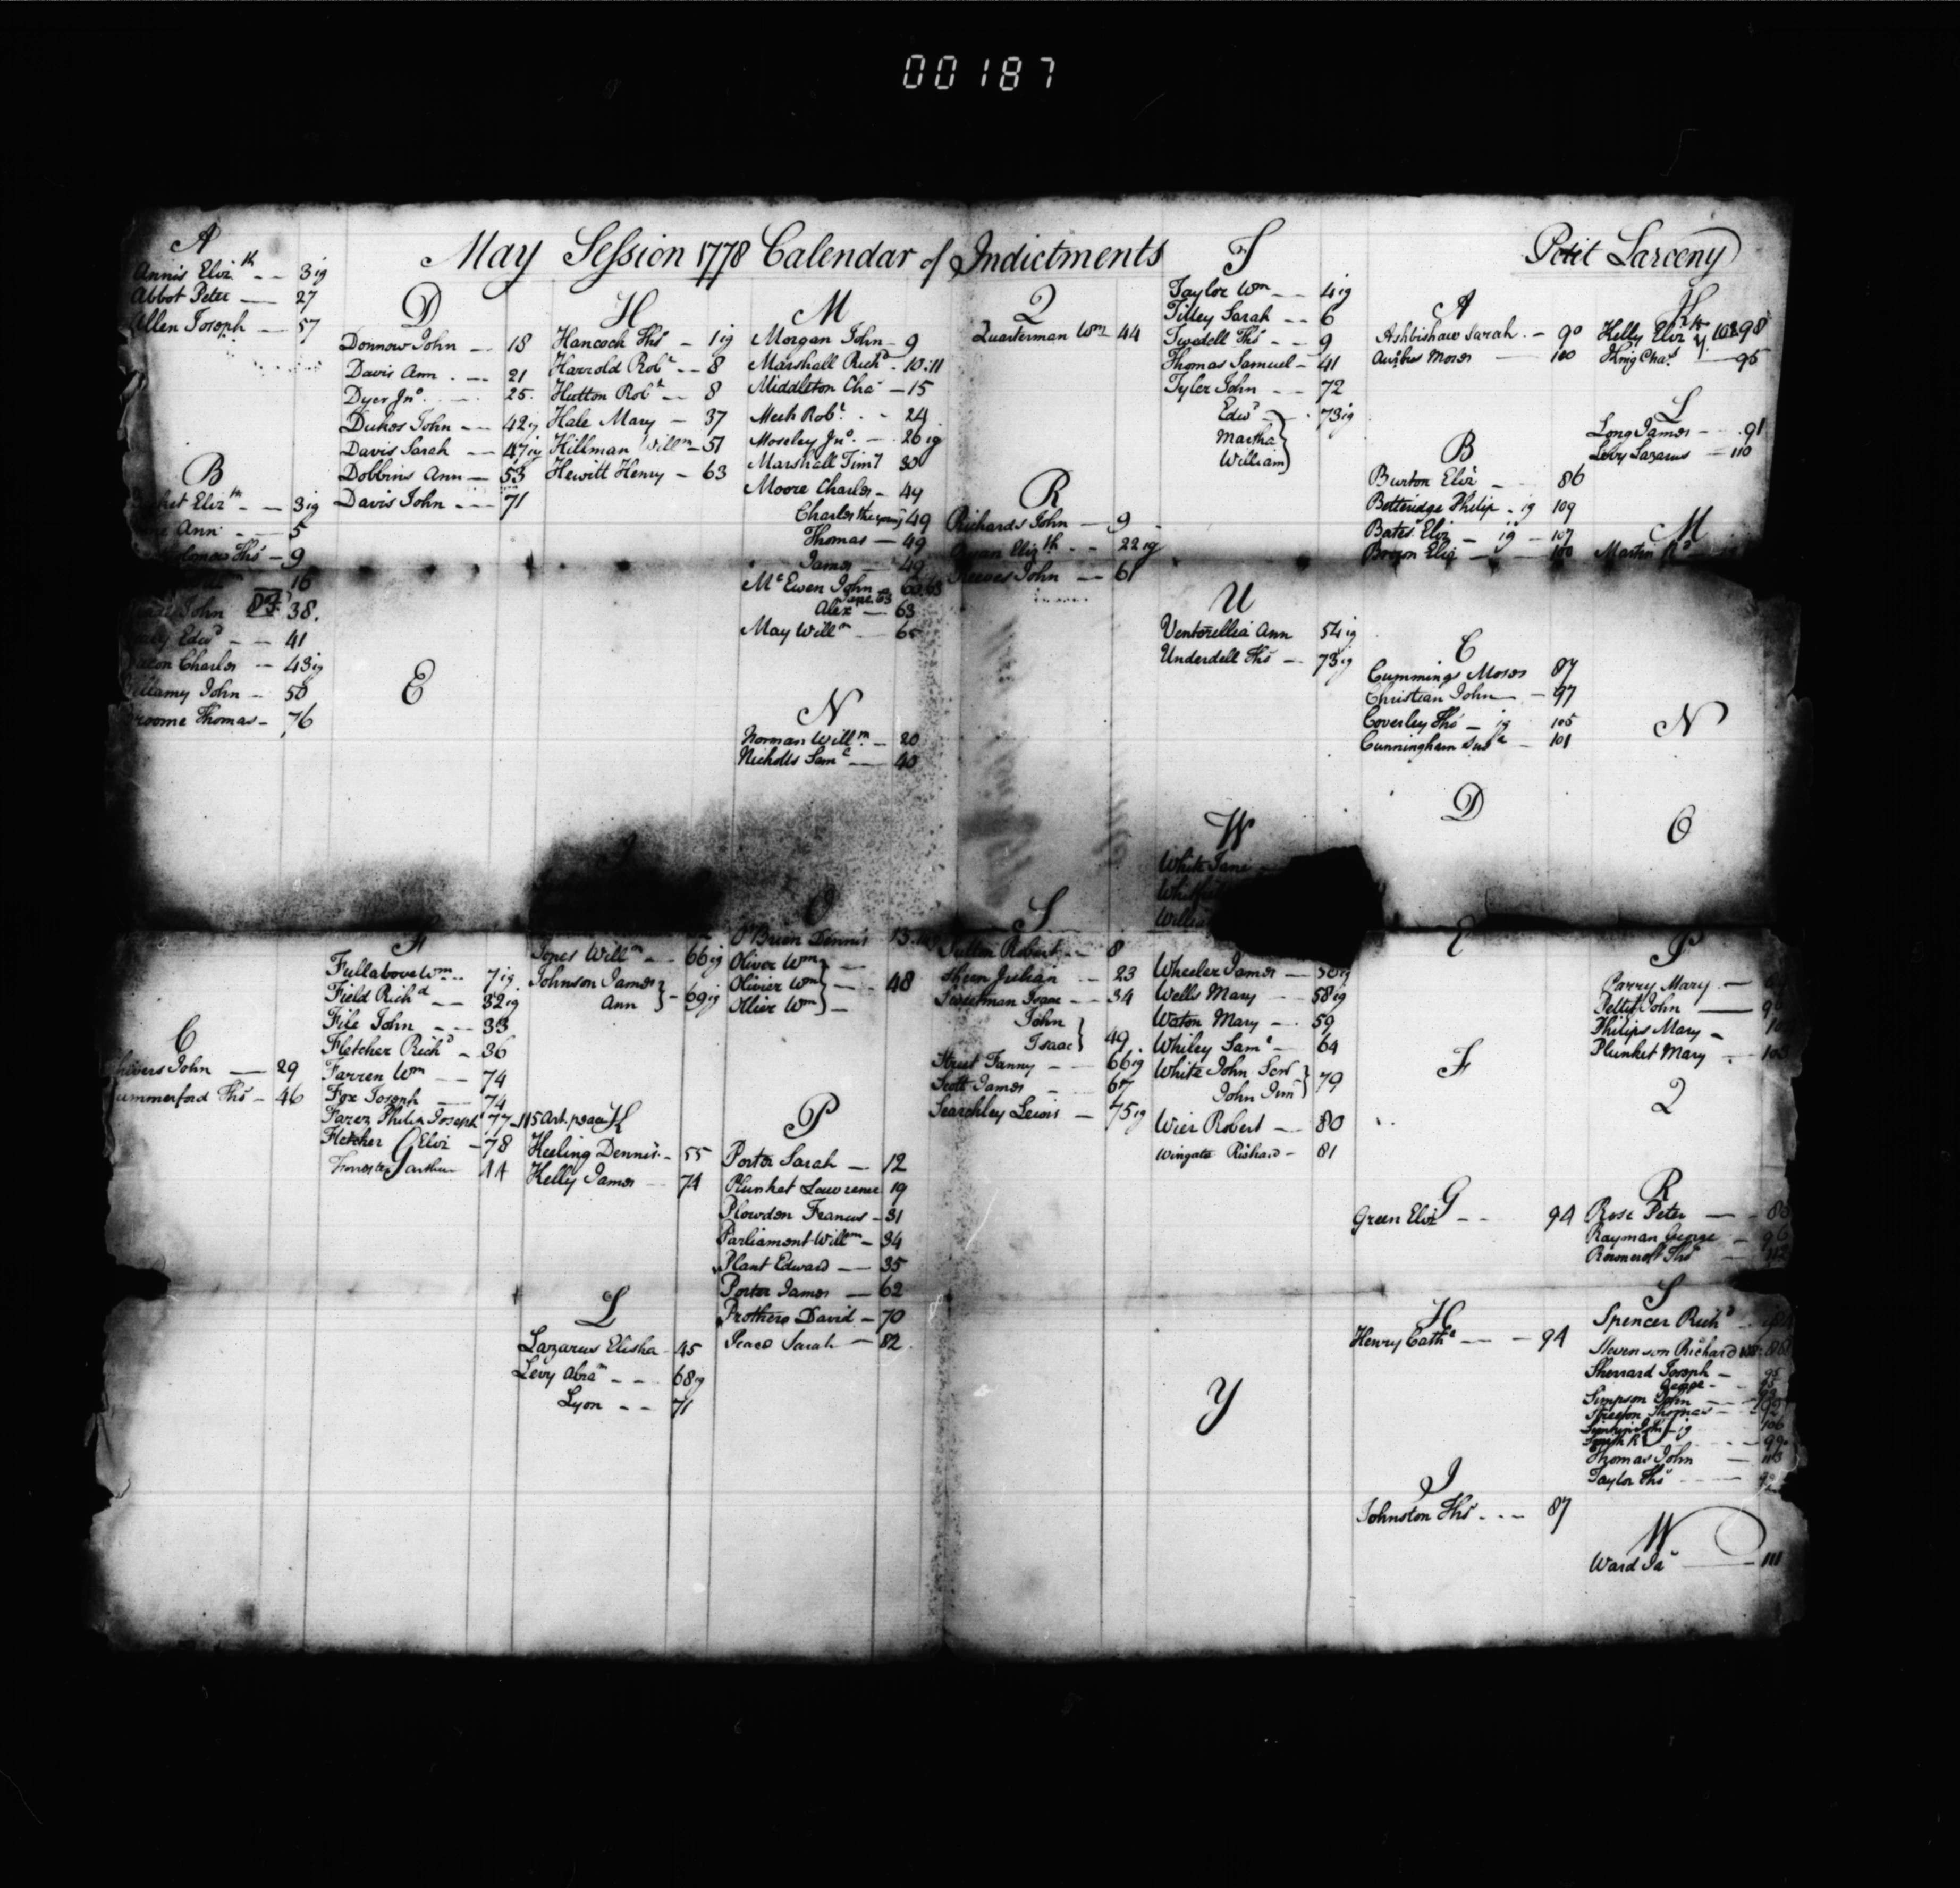 00187
May Session 1778 Calendar of Indictments
A
Annis Eliz.th -- 3 ig
Abbot Peter — 27
Allen Joseph — 57
B
Eliz.th -- 3 ig
Ann - 5
Tho.s - 9
16
John 38.
Edw.d -- 41
Charles -- 43 ig
John - 50
Thomas - 76
C
John — 29
Tho.s - 46
D
Donnow John -- 18
Davis Ann -- 21
Dyer Jn.o -- 25.
Dukes John -- 42 ig
Davis Sarah -- 47 ig
Dobbins Ann — 53
Davis John --- 71
E
F
Fullabove Wm -- 7 ig
Field Rich.d -- 32 ig
File John --- 33
Fletcher Rich.d - 36
Farren Wm -- 74
Fox Joseph -- 74
Farez Philip Joseph 77
Fletcher Eliz - 78
G
H
Hancock Tho.s - 1 ig
Harrold Rob.t -- 8
Hutton Rob.t -- 8
Hale Mary - 37
Hillman Will.m - 51
Hewitt Henry - 63
Jones Will.m -- 66 ig
Johnson James
Ann } - 69 ig
K
Keeling Dennis - 55
Kelly James -- 74
L
Lazarus Elisha - 45
Levy Abra.m --- 68 ig
Lyon -- 71
M
Morgan John - 9
Marshall Rich.d - 10.11
Middleton Cha.s - 15
Meek Rob.t - 24
Moseley Jn.o - 26 ig
Marshall Tim.y 30
Moore Charles - 49
Charles the young 49
Thomas — 49
James — 49
Mc.Ewen John -
Jane 63
Alex — 63
May Will.m — 65
N
Norman Will.m - 20
Nicholls Sam.l — 40
O
O'Brien Dennis
Oliver Wm
Olivier Wm } --- 48
Ollier Wm
P
Porter Sarah — 12
Plunket Lawrence 19
Plowden Francis - 31
Parliament Will.m - 34
Plant Edward — 35
Porter James — 62
Prothero David - 70
Peace Sarah — 82
Q
Quarterman Wm 44
R
Richards John — 9
Eliz.th -- 22 ig
Reeves John — 61
S
Sutton Robert - 8
Sheen Julian -- 23
Sweetman Isaac -- 34
John
Isaac } 49
Street Fanny -- 66 ig
Scott James -- 67
Searchley Lewis - 75 ig
T
Taylor Wm -- 4 ig
Tilley Sarah -- 6
Twedell Tho.s -- 9
Thomas Samuel - 41
Tyler John -- 72
Edw.d -- 73 ig
Martha
William }
U
Ventorellia Ann 54 ig
Underdell Tho.s -- 73 ig
W
White Jane
Wheeler James — 56 ig
Wells Mary -- 58 ig
Waton Mary -- 59
Whiley Sam.l -- 64
White John Sen.r
John Jun.r } 79
Wier Robert -- 80
Wingate Richard - 81
Y
Petit Larceny
A
Ashbishaw Sarah - 90
Moses — 100
B
Burton Eliz - 86
Betteridge Philip - ig 109
Bates Eliz - ig - 107
Brown Eliz — 100
C
Cummings Moses 87
Christian John — 97
Coverley Tho.s - ig 105
Cunningham Sus.a - 101
D
E
F
G
Green Eliz -- 94
H
Henry Cath.e -- 94
J
Johnston Tho.s --- 87
K
Kelly Eliz.th
King Cha.s — 95
L
Long James -- 91
Levy Lazarus -- 110
M
Martin R.d
N
O
P
Parry Mary
Pettit John
Philips Mary
Plunket Mary
Q
R
Rose Peter
Rayman George
S
Spencer Rich.d
Stevenson Richard
Sherrard Joseph - 95
George
Simpson John
Thomas John
Taylor Tho.s
W
Ward Ja.s — 111